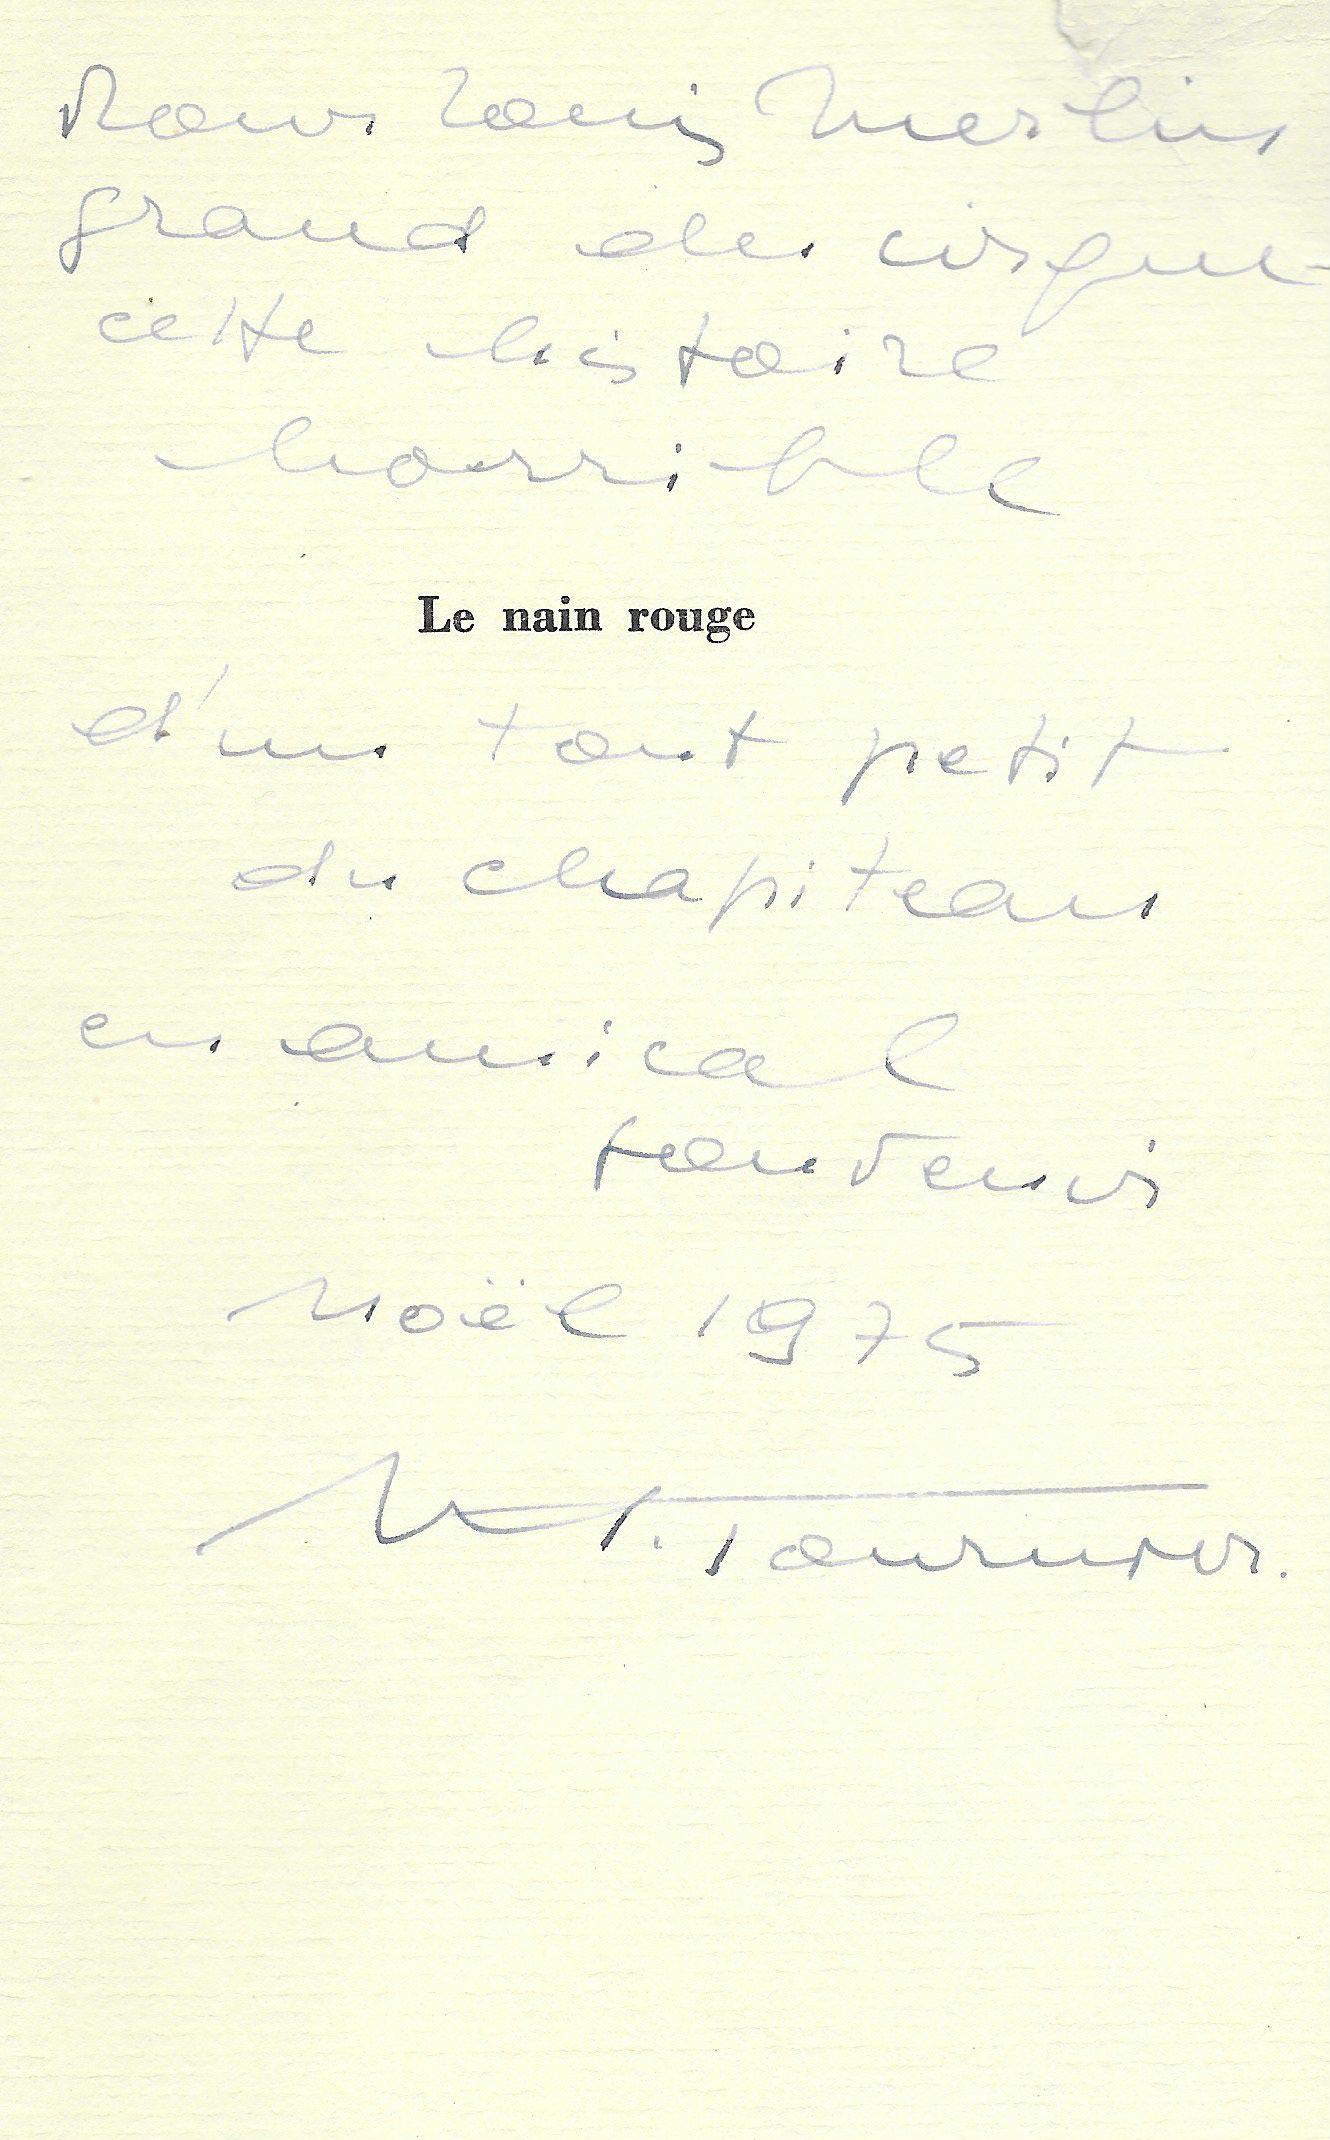 Pour Louis Merlin
grand du cirque
cette histoire
horrible
Le nain rouge
d'un tout petit
du chapiteau
en amical
souvenir
Noël 1975
M. Tournier.